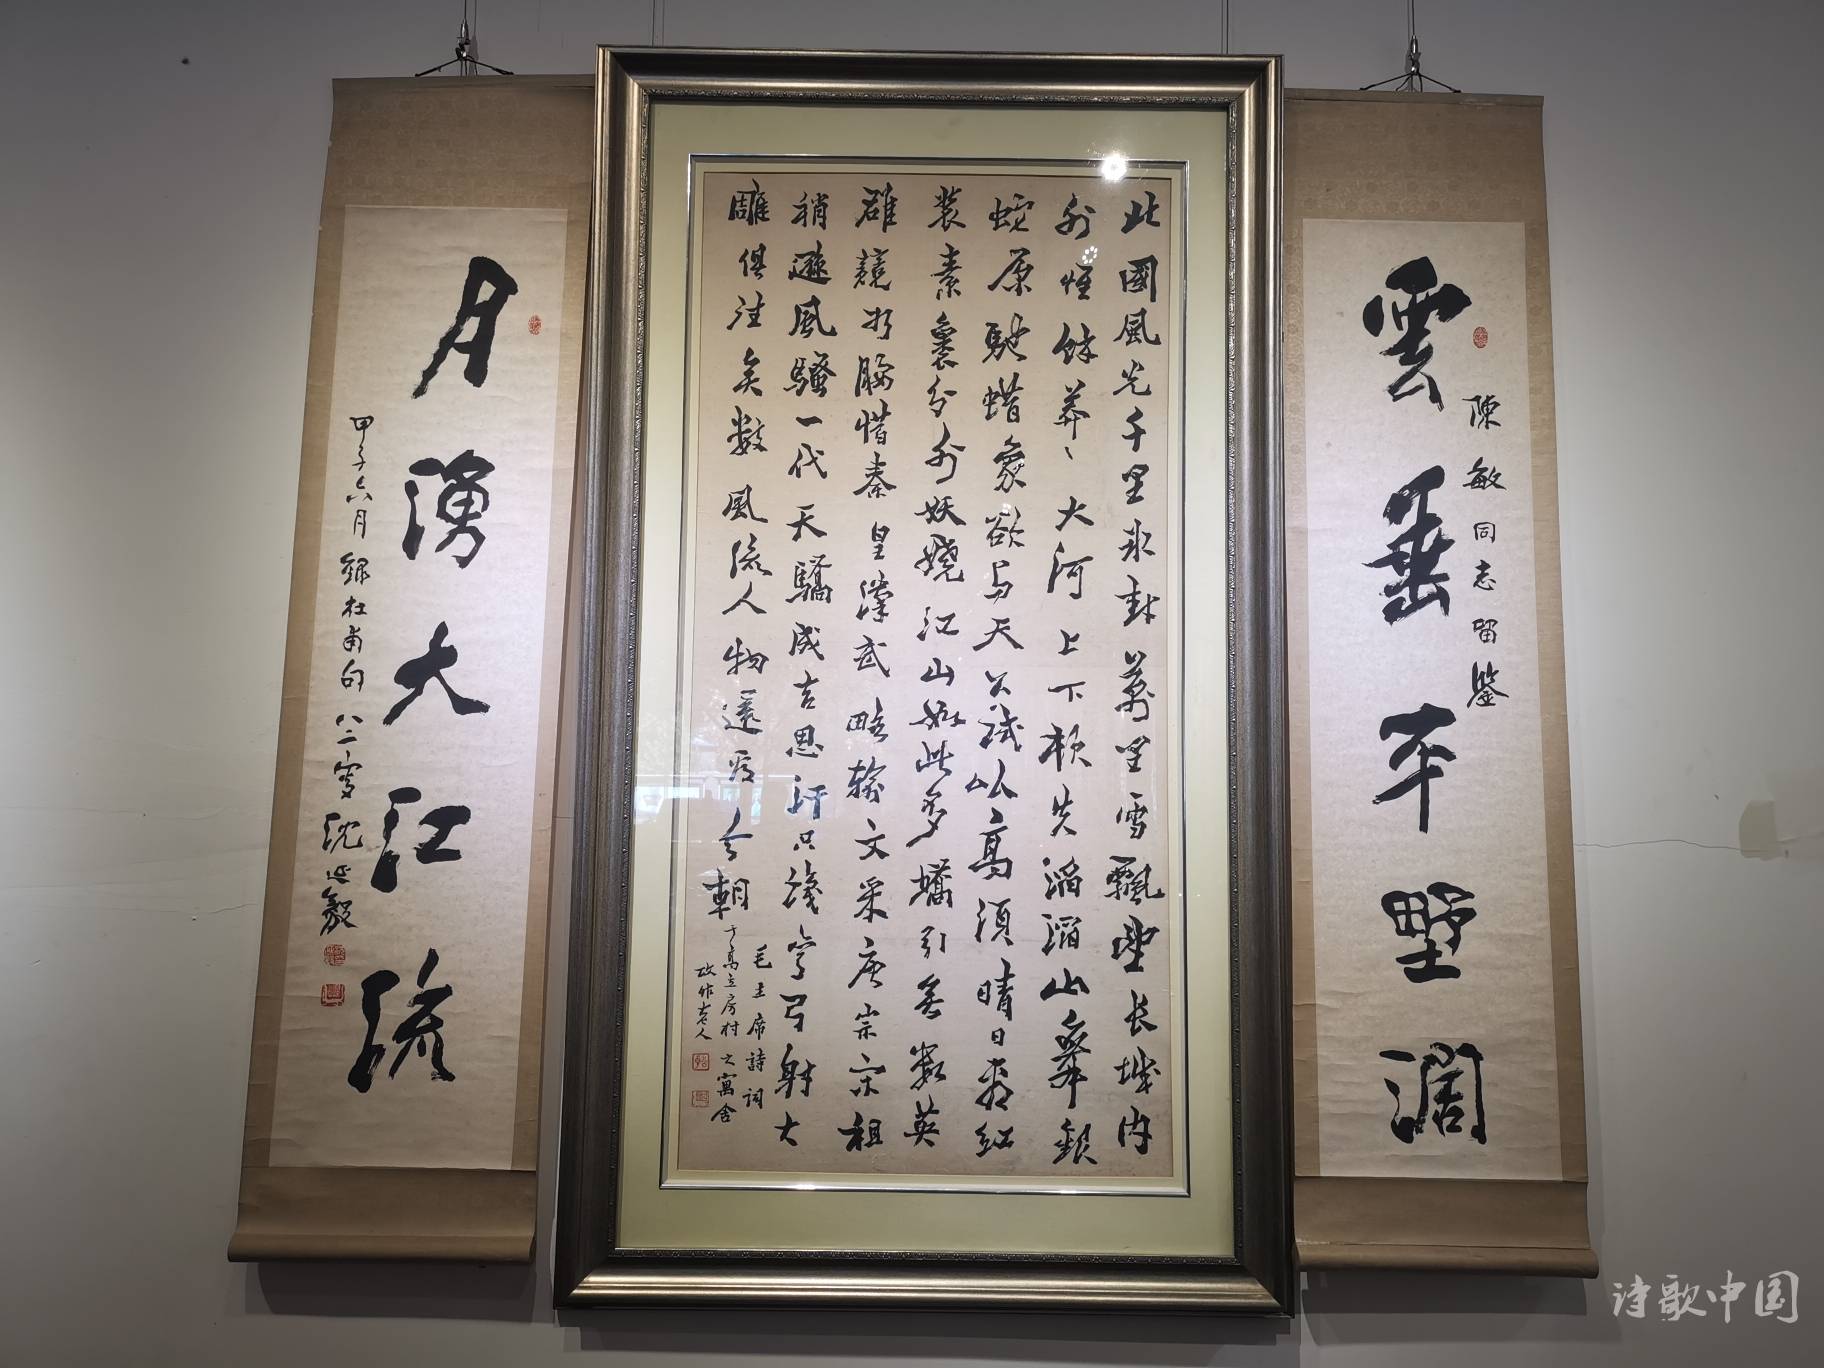 陳敏同志留鑒
雲垂平野闊
北國風光千里冰封萬里雪飄望長城內
外惟餘莽〻大河上下頓失滔滔山舞銀
蛇原馳蜡象欲与天公試比高須晴日看紅
裝素裹分外妖嬈江山如此多嬌引無數英
雄競折腰惜秦皇漢武略輸文采唐宗宋祖
稍遜風騷一代天驕成吉思汗只識彎弓射大
雕俱往矣數風流人物還看今朝
毛主席詩詞
于高立房村之寓舍
故作老人
月湧大江流
甲子六月錄杜甫句八二叟沈延毅
诗歌中国